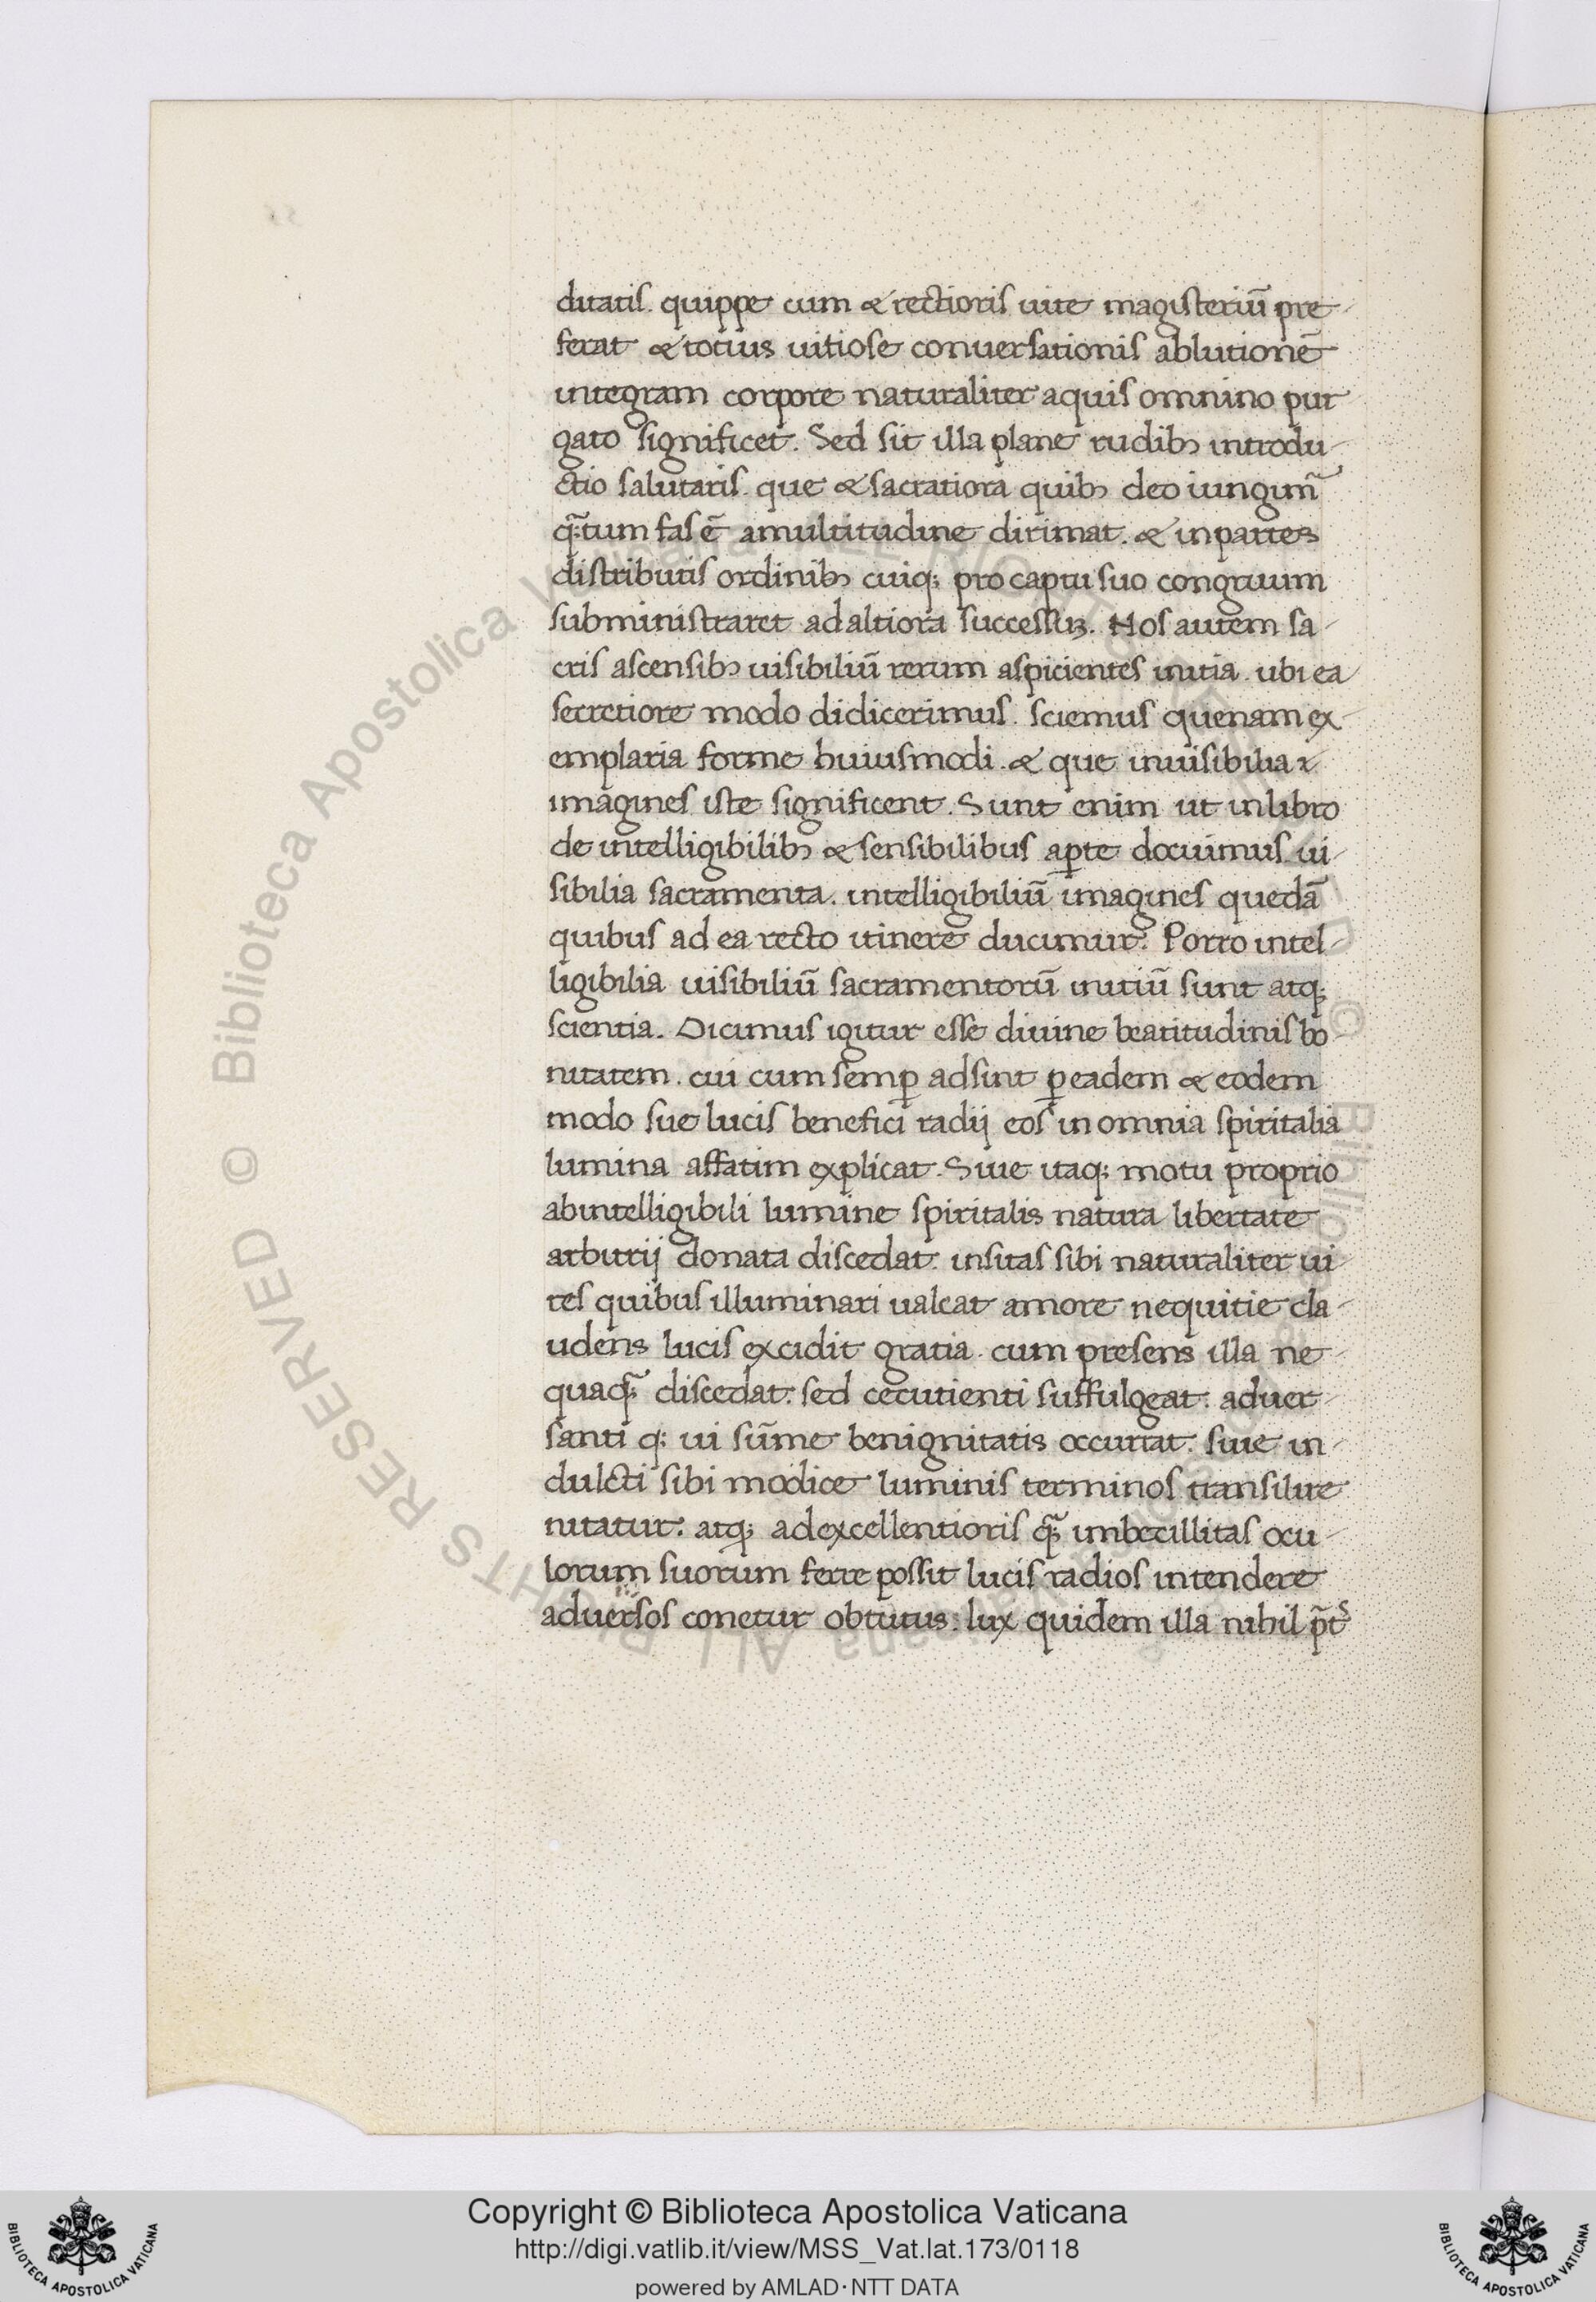 ditatis. quippe cum & rectioris uite magisteriū pre-
ferat & totius uitiose conuersationis ablutionē
integram corpore naturaliter aquis omnino pur
gato significet. Sed sit illa plane rudibꝫ introdu-
ctio salutaris. que & sacratiora quibꝫ deo iungimr̃
q̃tum fas ē a multitudine dirimat. & in partes
distributis ordinibꝫ cuiq; pro captu suo congruum
subministraret ad altiora successuꝫ. Nos autem sa-
cris ascensibꝫ uisibiliū rerum aspicientes initia. ubi ea
secretiore modo didicerimus. sciemus quenam ex-
emplaria forme huiusmodi. & que inuisibilia
imagines iste significent. Sunt enim ut in libro
de intelligibilibꝫ & sensibilibus aꝑte docuimus. ui-
sibilia sacramenta. intelligibiliū imagines quedā
quibus ad ea recto itinere ducimur. Porro intel-
ligibilia uisibiliū sacramentorū initiū sunt atq;
scientia. Dicimus igitur esse diuine beatitudinis bo
nitatem. cui cum semꝑ adsint ꝑ eadem & eodem
modo sue lucis benefici radij eos in omnia spiritalia
lumina affatim explicat. Siue itaq; motu proprio
ab intelligibili lumine spiritalis natura libertate
arbitrij donata discedat. insitas sibi naturaliter ui-
res quibus illuminari ualeat amore nequitie cla-
udens lucis excidit gratia. cum presens illa ne-
quaq̃ discedat. sed cecutienti suffulgeat. aduer-
santi q; ui sūme benignitatis occurrat. siue in-
dulcti sibi modice luminis terminos transilire
nitatur. atq; ad excellentioris q̃ imbecillitas ocu-
lorum suorum ferre possit lucis radios intendere
aduersos conetur obtutus: lux quidem illa nihil p̃t
Copyright © Biblioteca Apostolica Vaticana
http://digi.vatlib.it/view/MSS_Vat.lat.173/0118
powered by AMLAD·NTT DATA
BIBLIOTECA APOSTOLICA VATICANA
BIBLIOTECA APOSTOLICA VATICANA
© Biblioteca Apostolica Vaticana ALL RIGHTS RESERVED